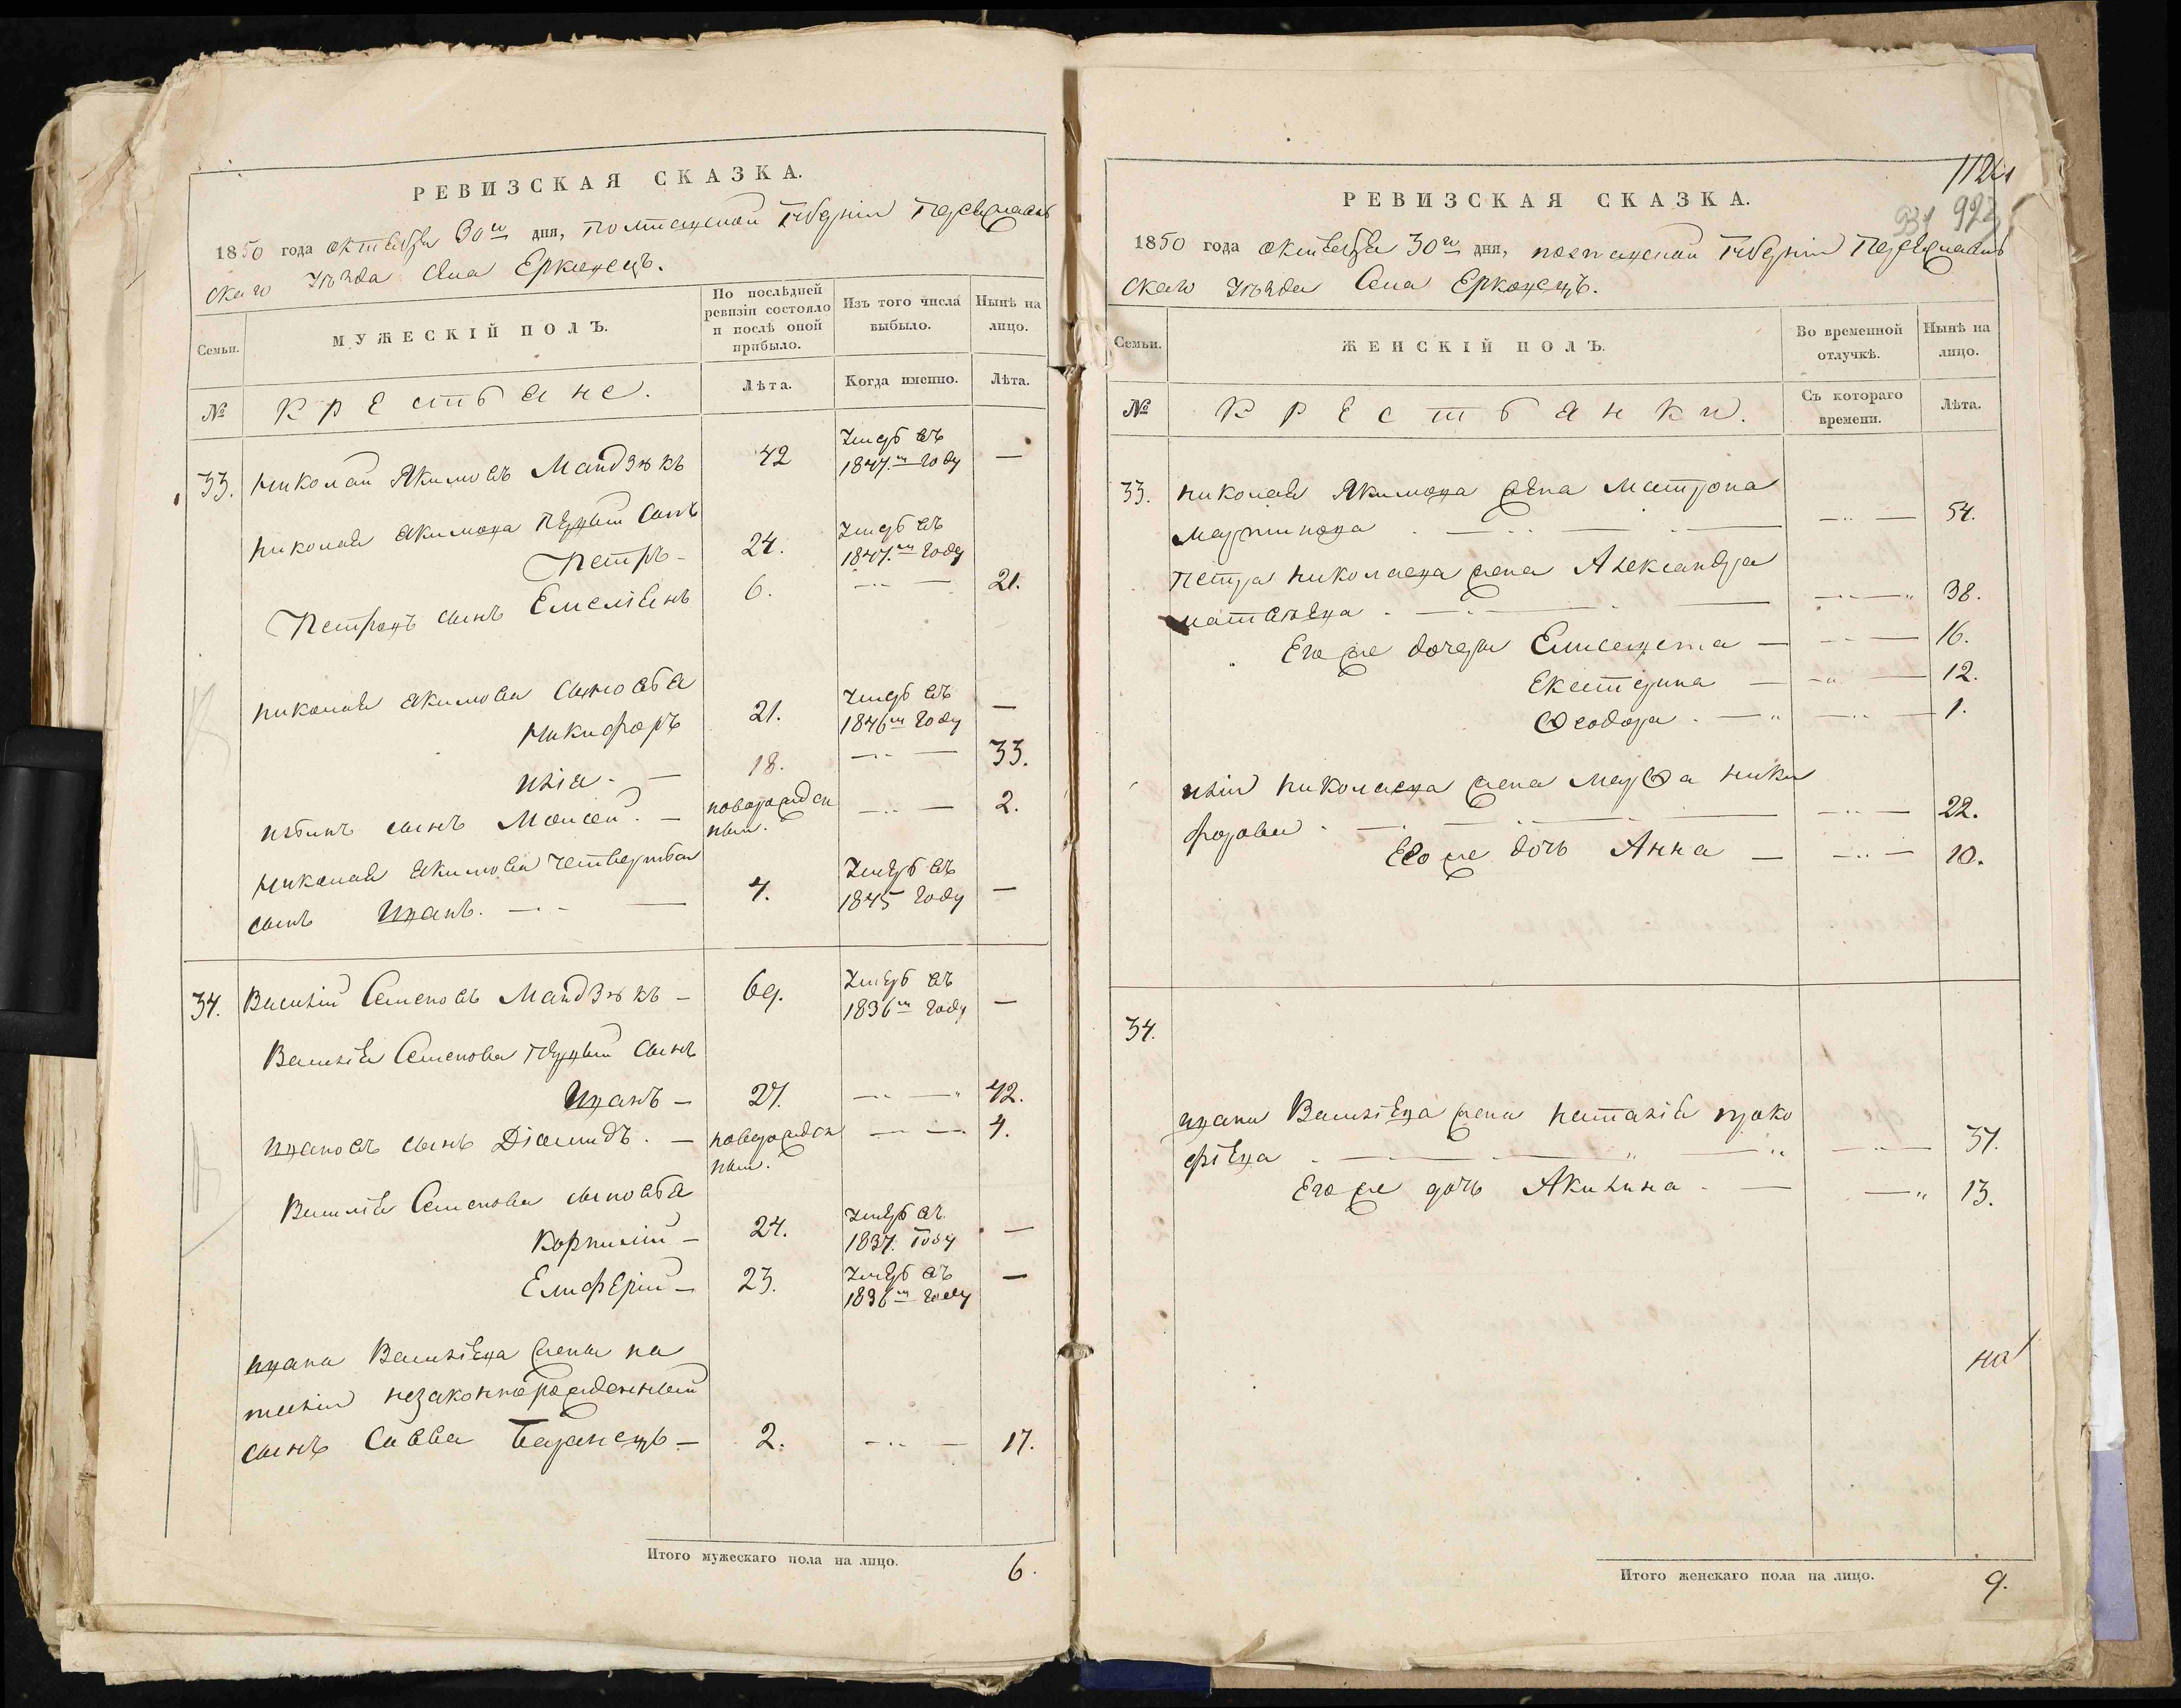 РЕВИЗСКАЯ СКАЗКА.
1850 года октября 30го дня, Полтавской Губерніи Переяслав
скаго Уѣзда Села Еркавецъ.
Семьи.
МУЖЕСКІЙ ПОЛЪ.
По послѣдней ревизіи состояло и послѣ оной прибыло.
Изъ того числа выбыло.
Нынѣ на лицо.
№
Крестьяне.
Лѣта.
Когда именно.
Лѣта.
33. Николай Якимовъ Майдзюкъ 42 Умеръ въ 1847м году —
Николая Якимова первый сынъ
Петръ — 24. Умеръ въ 1847м году
Петровъ сынъ Емеліянъ 6. — 21.
Николая Якимова сыновья
Никифоръ 21. Умеръ въ 1846м году —
Илія — 18. — 33.
Ильинъ сынъ Моисей — новорожден
ный. — 2.
Николая Якимова четвертый
сынъ Иванъ. — 4. Умеръ въ 1845 году —
34. Василій Семеновъ Майдзюкъ — 69. Умеръ въ 1836м году —
Василія Семенова первый сынъ
Иванъ — 27. — 42.
Ивановъ сынъ Діомидъ. — новорожден
ный. — 4.
Василія Семенова сыновья
Корнилій — 24. Умеръ въ 1837. году —
Елиферій — 23. Умеръ въ 1836м году —
Ивана Васильева жены На
таліи незаконнорожденный
сынъ Савва Баранецъ — 2. — 17.
Итого мужескаго пола на лицо. 6.
923
РЕВИЗСКАЯ СКАЗКА.
1850 года октября 30го дня, Полтавской Губерніи Переяслав
скаго Уѣзда Села Еркавецъ.
Семьи.
ЖЕНСКІЙ ПОЛЪ.
Во временной отлучкѣ.
Нынѣ на лицо.
№
Крестьянки.
Съ котораго времени.
Лѣта.
33. Николая Якимова жена Матрона
Мартинова — 54.
Петра Николаева жена Александра
Матвѣева — 38.
Его же дочери Елисавета — 16.
Екатерина — 12.
Ѳеодора — 1.
Иліи Николаева жена Марѳа Ники
форова — 22.
Его же дочь Анна — 10.
34.
Ивана Василіева жена Наталія Проко
фіева — 37.
Его же дочь Акилина — 13.
на
Итого женскаго пола на лицо. 9.